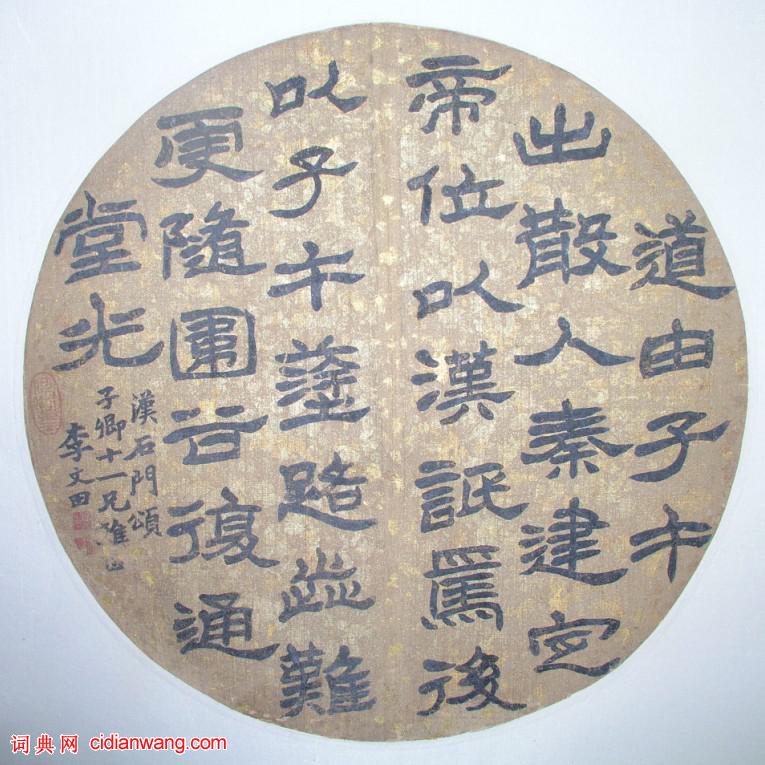 道由子午
出散入秦建定
帝位以漢詆焉後
以子午塗路歰難
更隨圍谷復通
堂光
漢石門頌
子卿十一兄雅
李文田
词典网 cidianwang.com